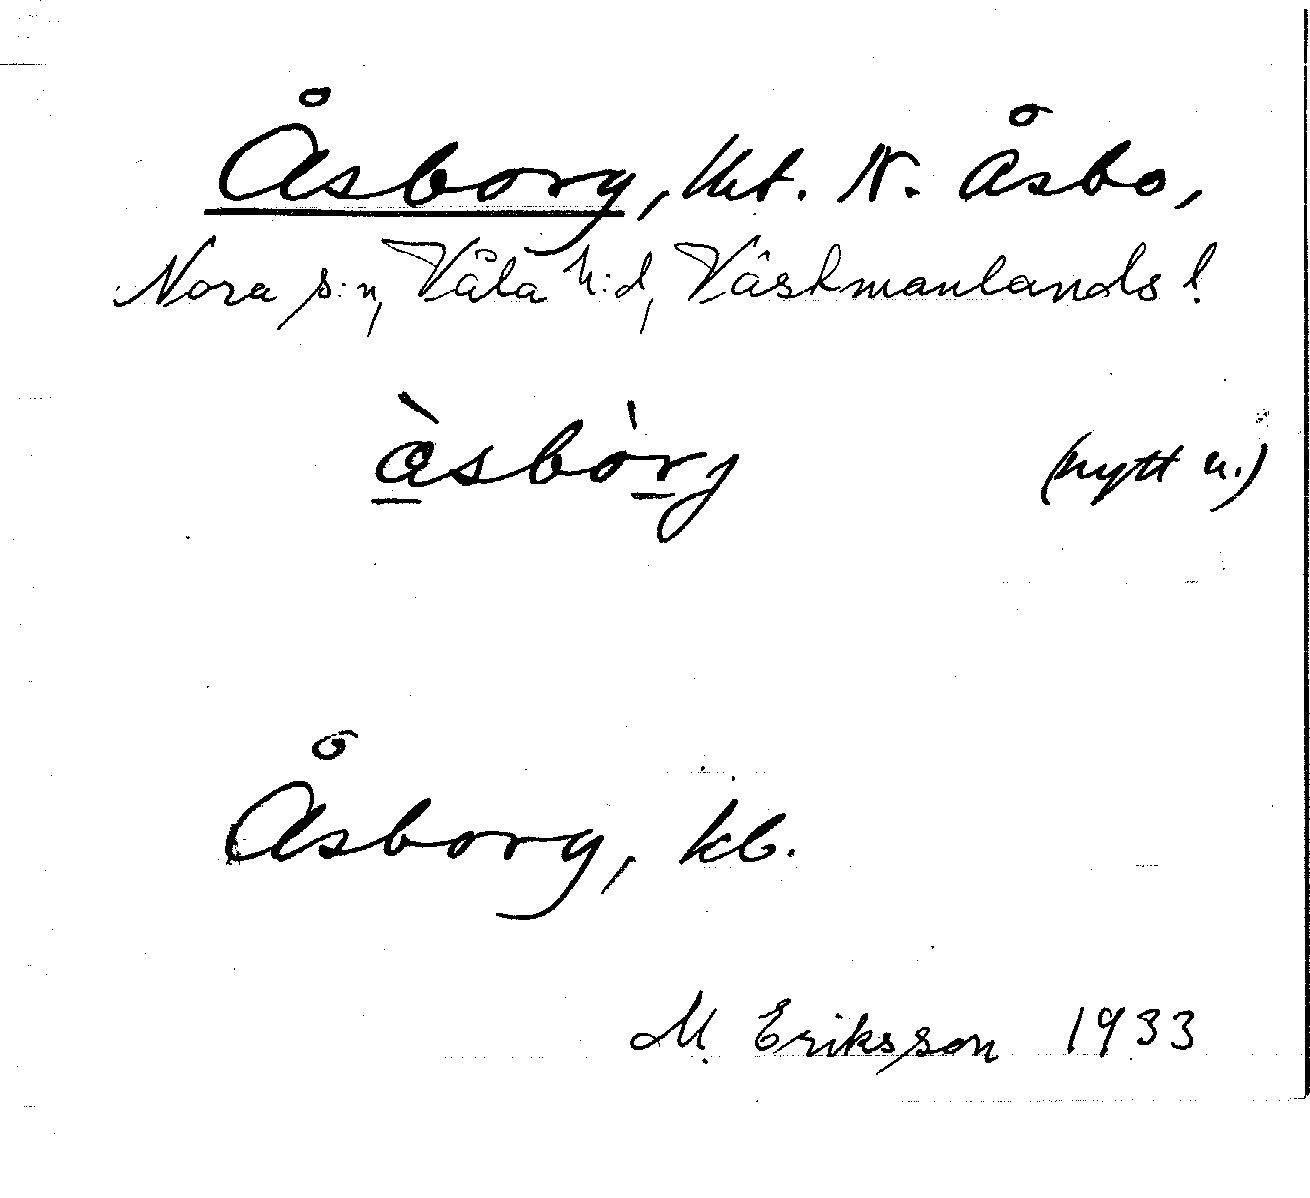 Åsborg, lht. N. Åsbo,
Nora s:n, Våla h:d, Västmanlands l.
à̲sbòr̲j (nytt u.)
Åsborg, kb.
M. Eriksson 1933